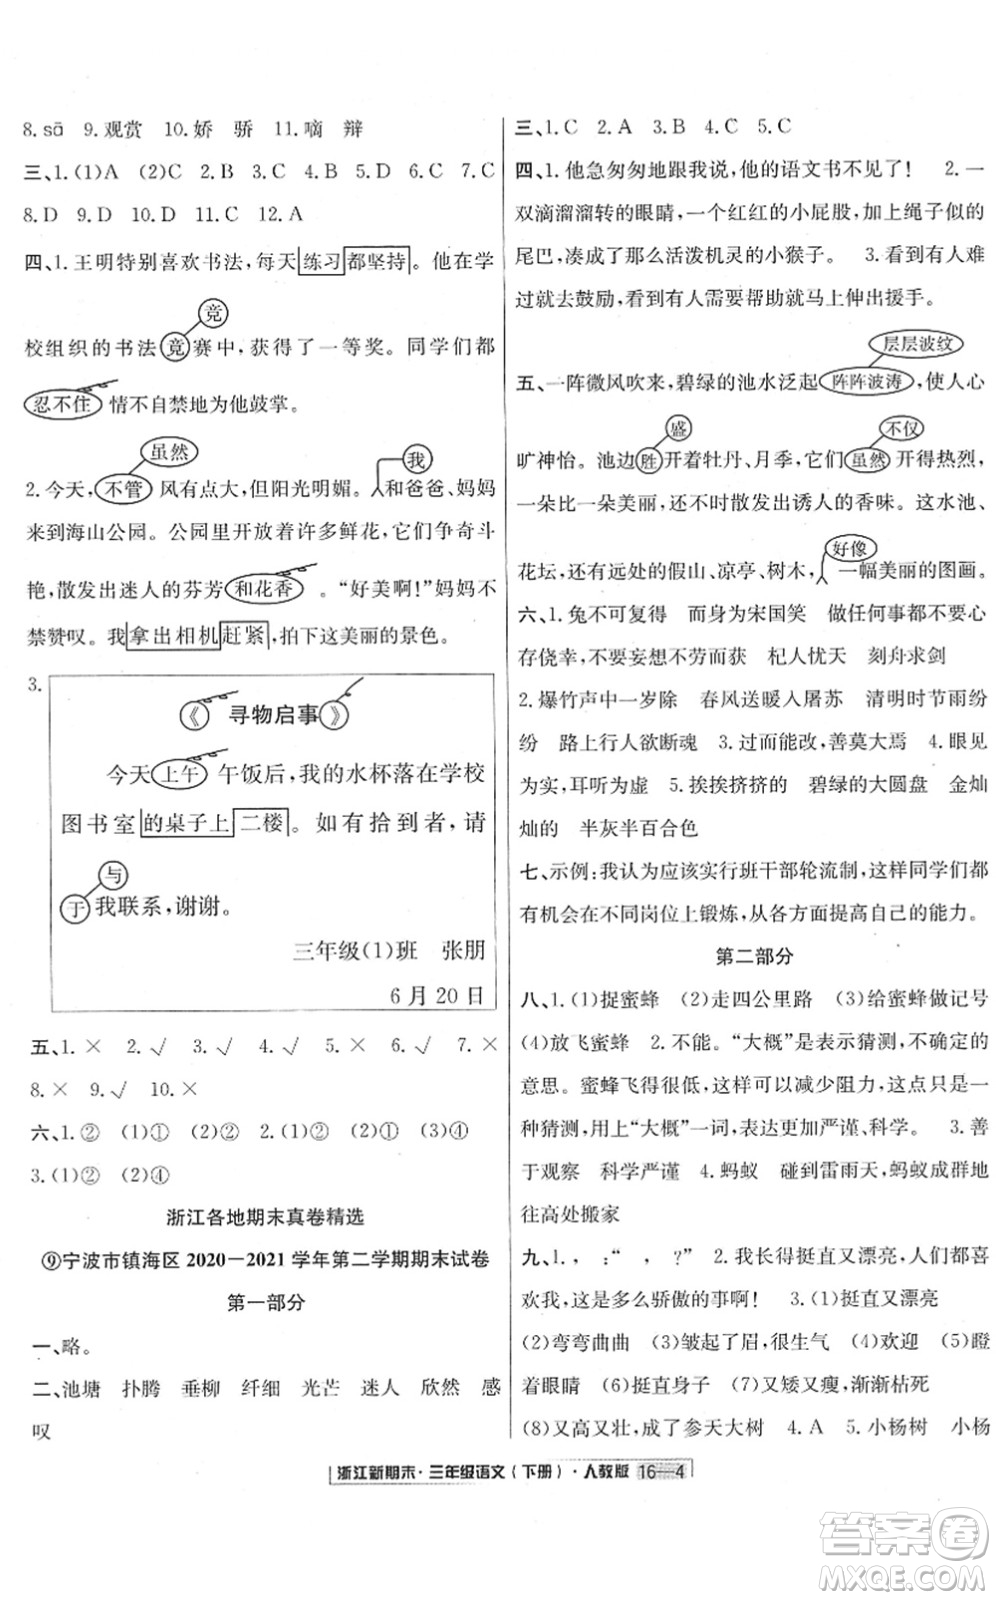 8. sā 9. 观赏 10. 娇 骄 11. 嘀 辩
三、1. (1)A (2)C 2. B 3. B 4. B 5. D 6. C 7. C
8. D 9. D 10. D 11. C 12. A
四、1. 王明特别喜欢书法,每天练习都坚持。他在学
竞
校组织的书法竟赛中,获得了一等奖。同学们都
忍不住情不自禁地为他鼓掌。
虽然 我
2. 今天,不管风有点大,但阳光明媚。和爸爸、妈妈
来到海山公园。公园里开放着许多鲜花,它们争奇斗
艳,散发出迷人的芬芳和花香。“好美啊!”妈妈不
禁赞叹。我拿出相机赶紧,拍下这美丽的景色。
3.
《寻物启事》
今天上午午饭后,我的水杯落在学校
图书室的桌子上二楼。如有拾到者,请
与
于我联系,谢谢。
三年级(1)班 张朋
6月20日
五、1. × 2. √ 3. √ 4. √ 5. × 6. √ 7. ×
8. × 9. √ 10. ×
六、1. ② (1)① (2)② 2. (1)① (2)② (3)④
3. (1)② (2)④
浙江各地期末真卷精选
⑨宁波市镇海区2020—2021学年第二学期期末试卷
第一部分
一、略。
二、池塘 扑腾 垂柳 纤细 光芒 迷人 欣然 感
叹
三、1. C 2. A 3. B 4. C 5. C
四、1. 他急匆匆地跟我说,他的语文书不见了! 2. 一
双滴溜溜转的眼睛,一个红红的小屁股,加上绳子似的
尾巴,凑成了那么活泼机灵的小猴子。 3. 看到有人难
过就去鼓励,看到有人需要帮助就马上伸出援手。
层层波纹
五、一阵微风吹来,碧绿的池水泛起阵阵波涛,使人心
盛 不仅
旷神怡。池边胜开着牡丹、月季,它们虽然开得热烈,
一朵比一朵美丽,而且不时散发出诱人的香味。这水池、
好像
花坛,还有远处的假山、凉亭、树木,一幅美丽的图画。
六、1. 兔不可复得 而身为宋国笑 做任何事都不要心
存侥幸,不要妄想不劳而获 杞人忧天 刻舟求剑
2. 爆竹声中一岁除 春风送暖入屠苏 清明时节雨纷
纷 路上行人欲断魂 3. 过而能改,善莫大焉 4. 眼见
为实,耳听为虚 5. 挨挨挤挤的 碧绿的大圆盘 金灿
灿的 半灰半百合色
七、示例:我认为应该实行班干部轮流制,这样同学们都
有机会在不同岗位上锻炼,从各方面提高自己的能力。
第二部分
八、1. (1)捉蜜蜂 (2)走四公里路 (3)给蜜蜂做记号
(4)放飞蜜蜂 2. 不能。“大概”是表示猜测,不确定的
意思。蜜蜂飞得很低,这样可以减少阻力,这点只是一
种猜测,用上“大概”一词,表达更加严谨、科学。 3. 善
于观察 科学严谨 4. 蚂蚁 碰到雷雨天,蚂蚁成群地
往高处搬家
九、1. , :“ , ?” 2. 我长得挺直又漂亮,人们都喜
欢我,这是多么骄傲的事啊! 3. (1)挺直又漂亮
(2)弯弯曲曲 (3)皱起了眉,很生气 (4)欢迎 (5)瞪
着眼睛 (6)挺直身子 (7)又矮又瘦,渐渐枯死
(8)又高又壮,成了参天大树 4. A 5. 小杨树 小杨
浙江新期末·三年级语文(下册)·人教版 16—4
答案卷
MXQE.COM